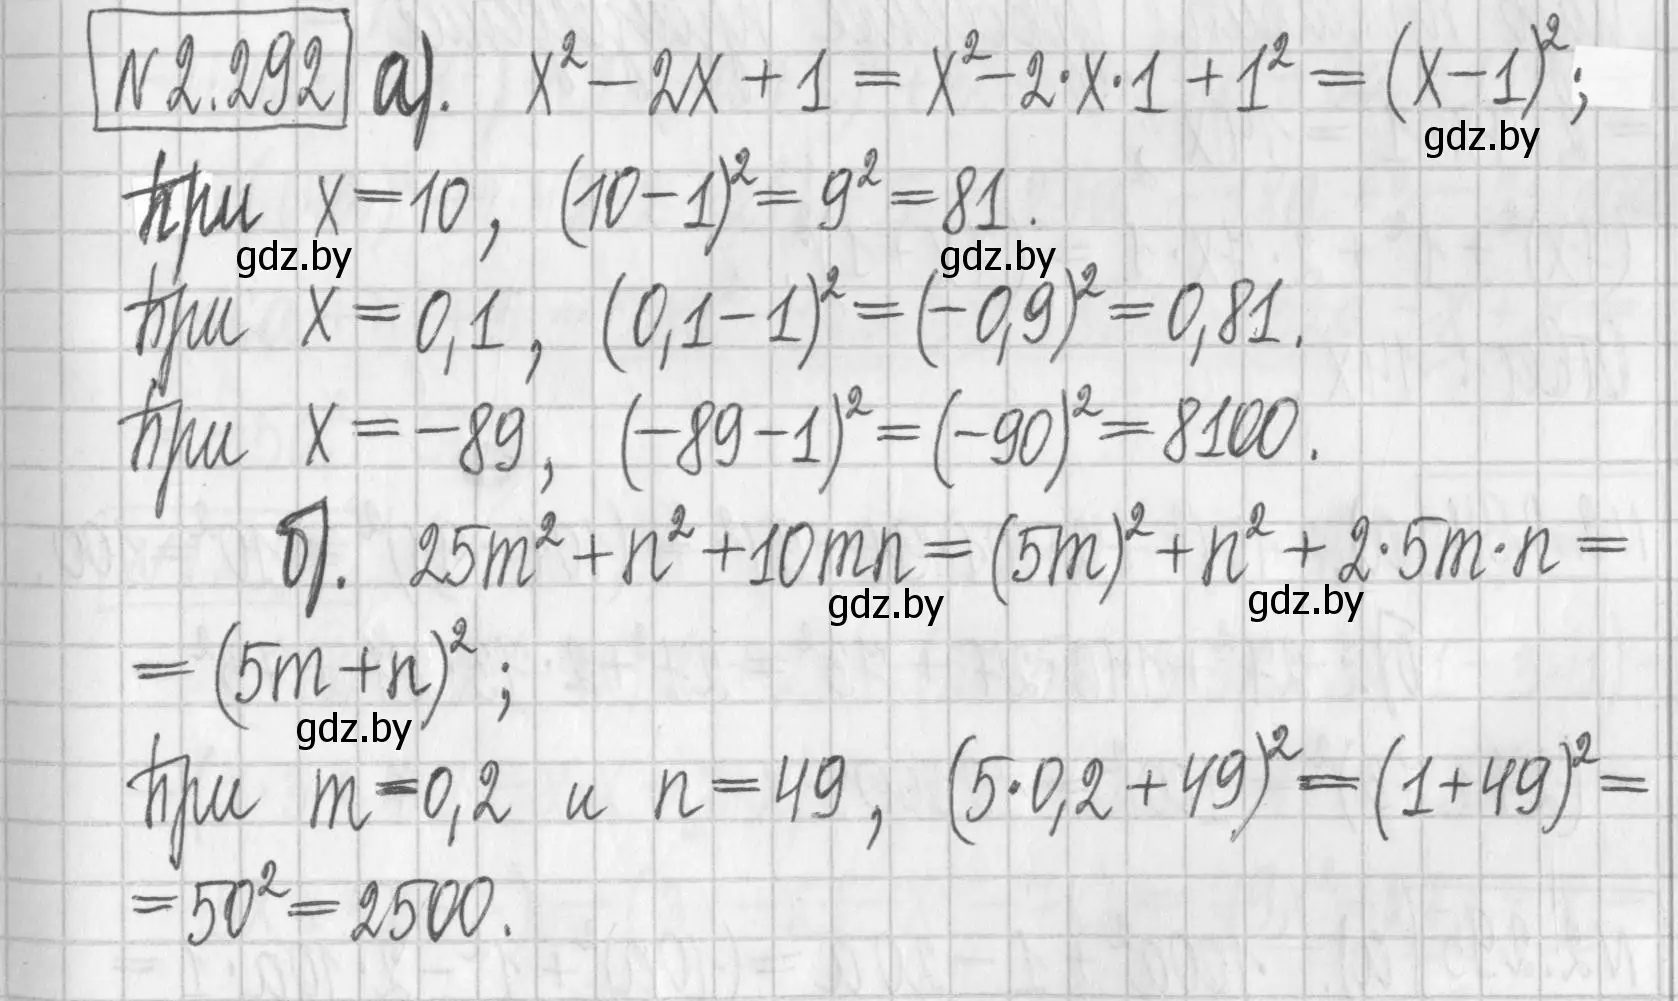 N 2.292 а). x² − 2x + 1 = x² − 2·x·1 + 1² = (x − 1)²;
gdz.by
при x = 10, (10 − 1)² = 9² = 81.
gdz.by gdz.by
при x = 0,1, (0,1 − 1)² = (−0,9)² = 0,81.
при x = −89, (−89 − 1)² = (−90)² = 8100.
б). 25m² + n² + 10mn = (5m)² + n² + 2·5m·n =
gdz.by gdz.by
= (5m + n)²;
gdz.by
при m = 0,2 и n = 49, (5·0,2 + 49)² = (1 + 49)² =
= 50² = 2500.